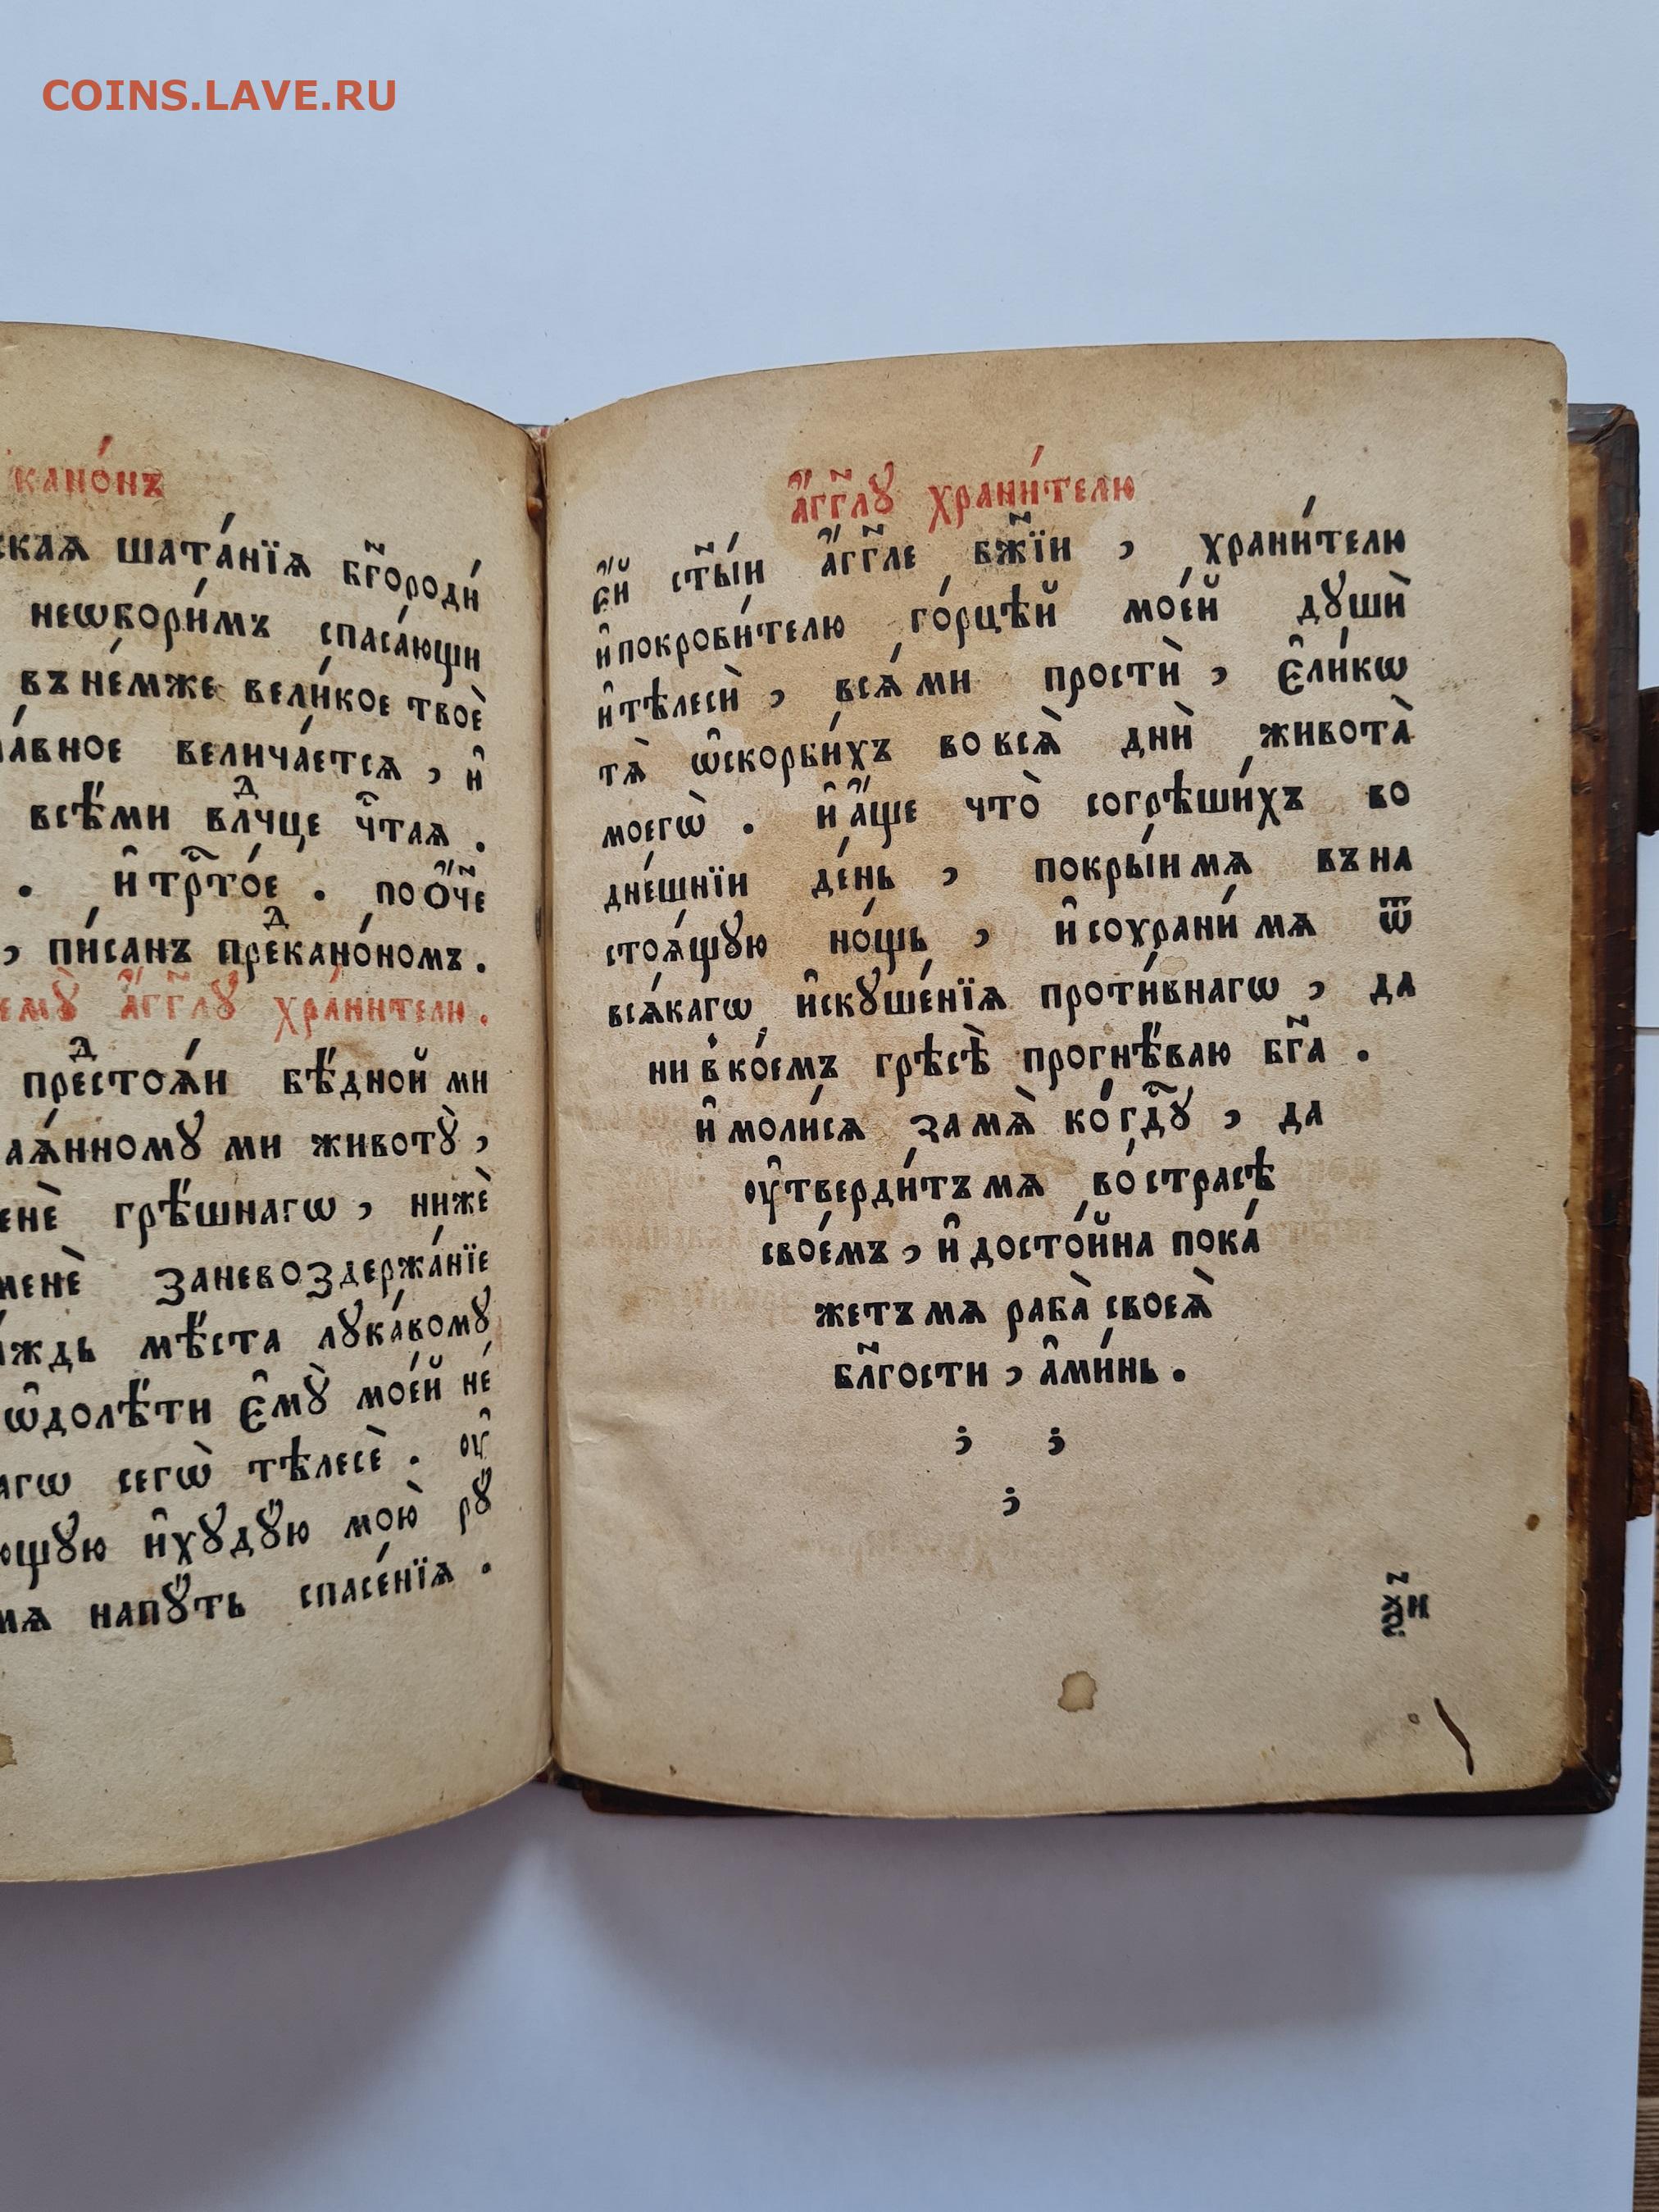 COINS.LAVE.RU
канѡ́нъ
шата́нїѧ бг҃ороди́
неѡбори́мъ спаса́ющи
въне́мже вели́кое твоѐ
велича́етсѧ, и҆
всѣ́ми влⷣчце чⷭ҇таѧ.
. и҆трⷭ҇то́е . поѻ҆́ч҃е
, пи́санъ преⷣкано́номъ.
а҆́гг҃лꙋ храни́телю.
преⷣстоѧ́и бѣ́дной ми
ми животꙋ̀,
грѣ́шнагѡ, нижѐ
заневоздержа́нїе
мѣ́ста лꙋка́вомꙋ
ѡ҆долѣ́ти є҆мꙋ̀ мое́й не́
сегѡ̀ тѣлесѐ. оу҆
и҆хꙋдꙋ́ю мою̀ рꙋ́
напꙋ́ть спасе́нїѧ.
а҆́гг҃лꙋ храни́телю
є҆́й ст҃ы́и а҆́гг҃ле бж҃їи, храни́телю
и҆покрови́телю го́рцѣй мое́й дꙋшѝ
и҆тѣлесѝ, всѧ́ ми простѝ, є҆ли́кѡ
тѧ̀ ѡ҆скорби́хъ во всѧ̀ днѝ живота̀
моегѡ̀. и҆ а҆́ще что̀ согрѣши́хъ во
дне́шнїи де́нь, покры́и мѧ въ на
стоѧ́щꙋю но́щь, и҆ сохрани́ мѧ ѿ
всѧ́кагѡ и҆скꙋше́нїѧ проти́внагѡ, да
ни в ко́емъ грѣсѣ̀ прогнѣ́ваю бг҃а.
и҆ моли́сѧ за мѧ̀ ко́ гдⷭ҇ꙋ, да
оу҆тверди́тъ мѧ во́ страсѣ
свое́мъ, и҆ досто́йна пока́
жетъ мѧ раба̀ своеѧ̀
бл҃гости, а҆ми́нь.
; ;
;